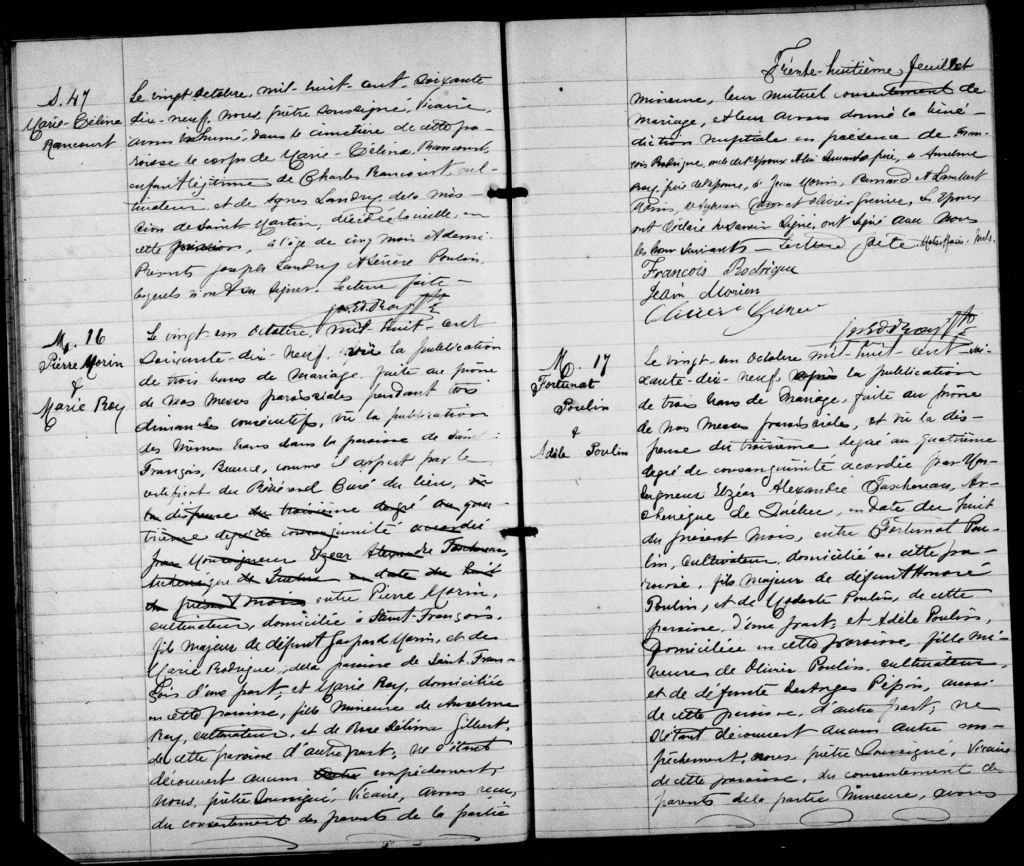 S. 47
Marie-Célina
Rancourt
Le vingt octobre, mil-huit-cent-soixante
dix-neuf, nous, prêtre soussigné, Vicaire,
avons inhumé, dans le cimetière de cette pa-
roisse le corps de Marie-Célina Rancourt,
enfant légitime de Charles Rancourt, cul-
tivateur et de Agnes Landry de la mis-
sion de Saint Martin, décédée la veille, en
cette à l'âge de cinq mois et demi
Présents Joseph Landry et Poulin
lesquels n'ont su signer. Lecture faite—
Jos. Ed. Roy Ptre
M. 16
Pierre Morin
&
Marie Roy
Le vingt un octobre, mil-huit-cent
soixante-dix-neuf, vu la publication
de trois bans de mariage, faite au prône
de nos messes paroissiales pendant trois
dimanches consécutifs, vu la publication
des mêmes bans dans la paroisse de Saint-
François, Beauce, comme il appert par le
certificat du Révérend Curé du lieu, vu
la dispense du troisième degré au qua-
trième degré de consanguinité accordée
par Monseigneur Elzéar Alexandre Taschereau,
Archevêque de Québec en date du huit
du présent mois entre Pierre Morin,
cultivateur, domicilié à Saint-François,
fils majeur de défunt Gaspard Morin, et de
Marie Rodrigue, de la paroisse de Saint-Fran-
çois d'une part; et Marie Roy, domiciliée
en cette paroisse, fille mineure de Anselme
Roy, cultivateur, et de Rose Délima Gilbert,
de cette paroisse d'autre part; ne s'étant
découvert aucun autre empêchement,
nous, prêtre soussigné, Vicaire, avons reçu,
du consentement des parents de la partie
Trente-huitième feuillet
mineure, leur mutuel consentement de
mariage, et leur avons donné la béné-
diction nuptiale en présence de Fran-
çois Rodrigue, de l'époux et frère, & Anselme
Roy, père de l'épouse, & Jean Morin, Bernard et Lambert
Morin, et Olivier Grenier. Les époux
ont déclaré ne savoir signer, ont signé avec nous
les suivants — Lecture faite.
François Rodrigue
Jean Morien
Olivier Grenier
Jos. Ed. Roy Ptre
M. 17
Fortunat
Poulin
&
Adèle Poulin
Le vingt-un octobre mil-huit-cent-soi-
xante-dix-neuf, après la publication
de trois bans de mariage, faite au prône
de nos messes paroissiales, et vu la dis-
pense du troisième degré au quatrième
degré de consanguinité accordée par Mon-
seigneur Elzéar Alexandre Taschereau, Ar-
chevêque de Québec, en date du huit
du présent mois, entre Fortunat Pou-
lin, cultivateur, domicilié en cette pa-
roisse, fils majeur de défunt Honoré
Poulin, et de Modeste Poulin, de cette
paroisse, d'une part; et Adèle Poulin,
domiciliée en cette paroisse, fille mi-
neure de Olivier Poulin, cultivateur,
et de défunte Desanges Pépin, aussi
de cette paroisse, d'autre part; ne
s'étant découvert aucun autre em-
pêchement, nous, prêtre soussigné, Vicaire
de cette paroisse, du consentement des
parents de la partie mineure, avons